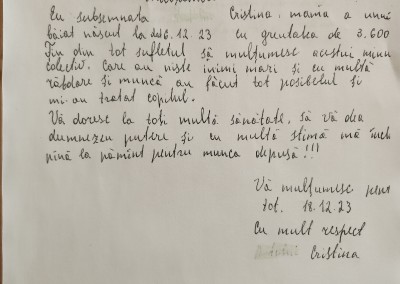 Eu subsemnata Cristina, mama a unui
băiat născut la 6.12.23 cu greutatea de 3.600
Țin din tot sufletul să mulțumesc acestui minu
colectiv. Care au niște inimi mari și cu multă
răbdare și muncă au făcut tot posibelul și
mi-au tratat copilul.
Vă doresc la toți multă sănătate, să vă dea
dumnezeu putere și cu multă stimă mă închi
pînă la pămînt pentru munca depusă!!!
Vă mulțumesc pent
tot. 18.12.23
Cu mult respect
Cristina